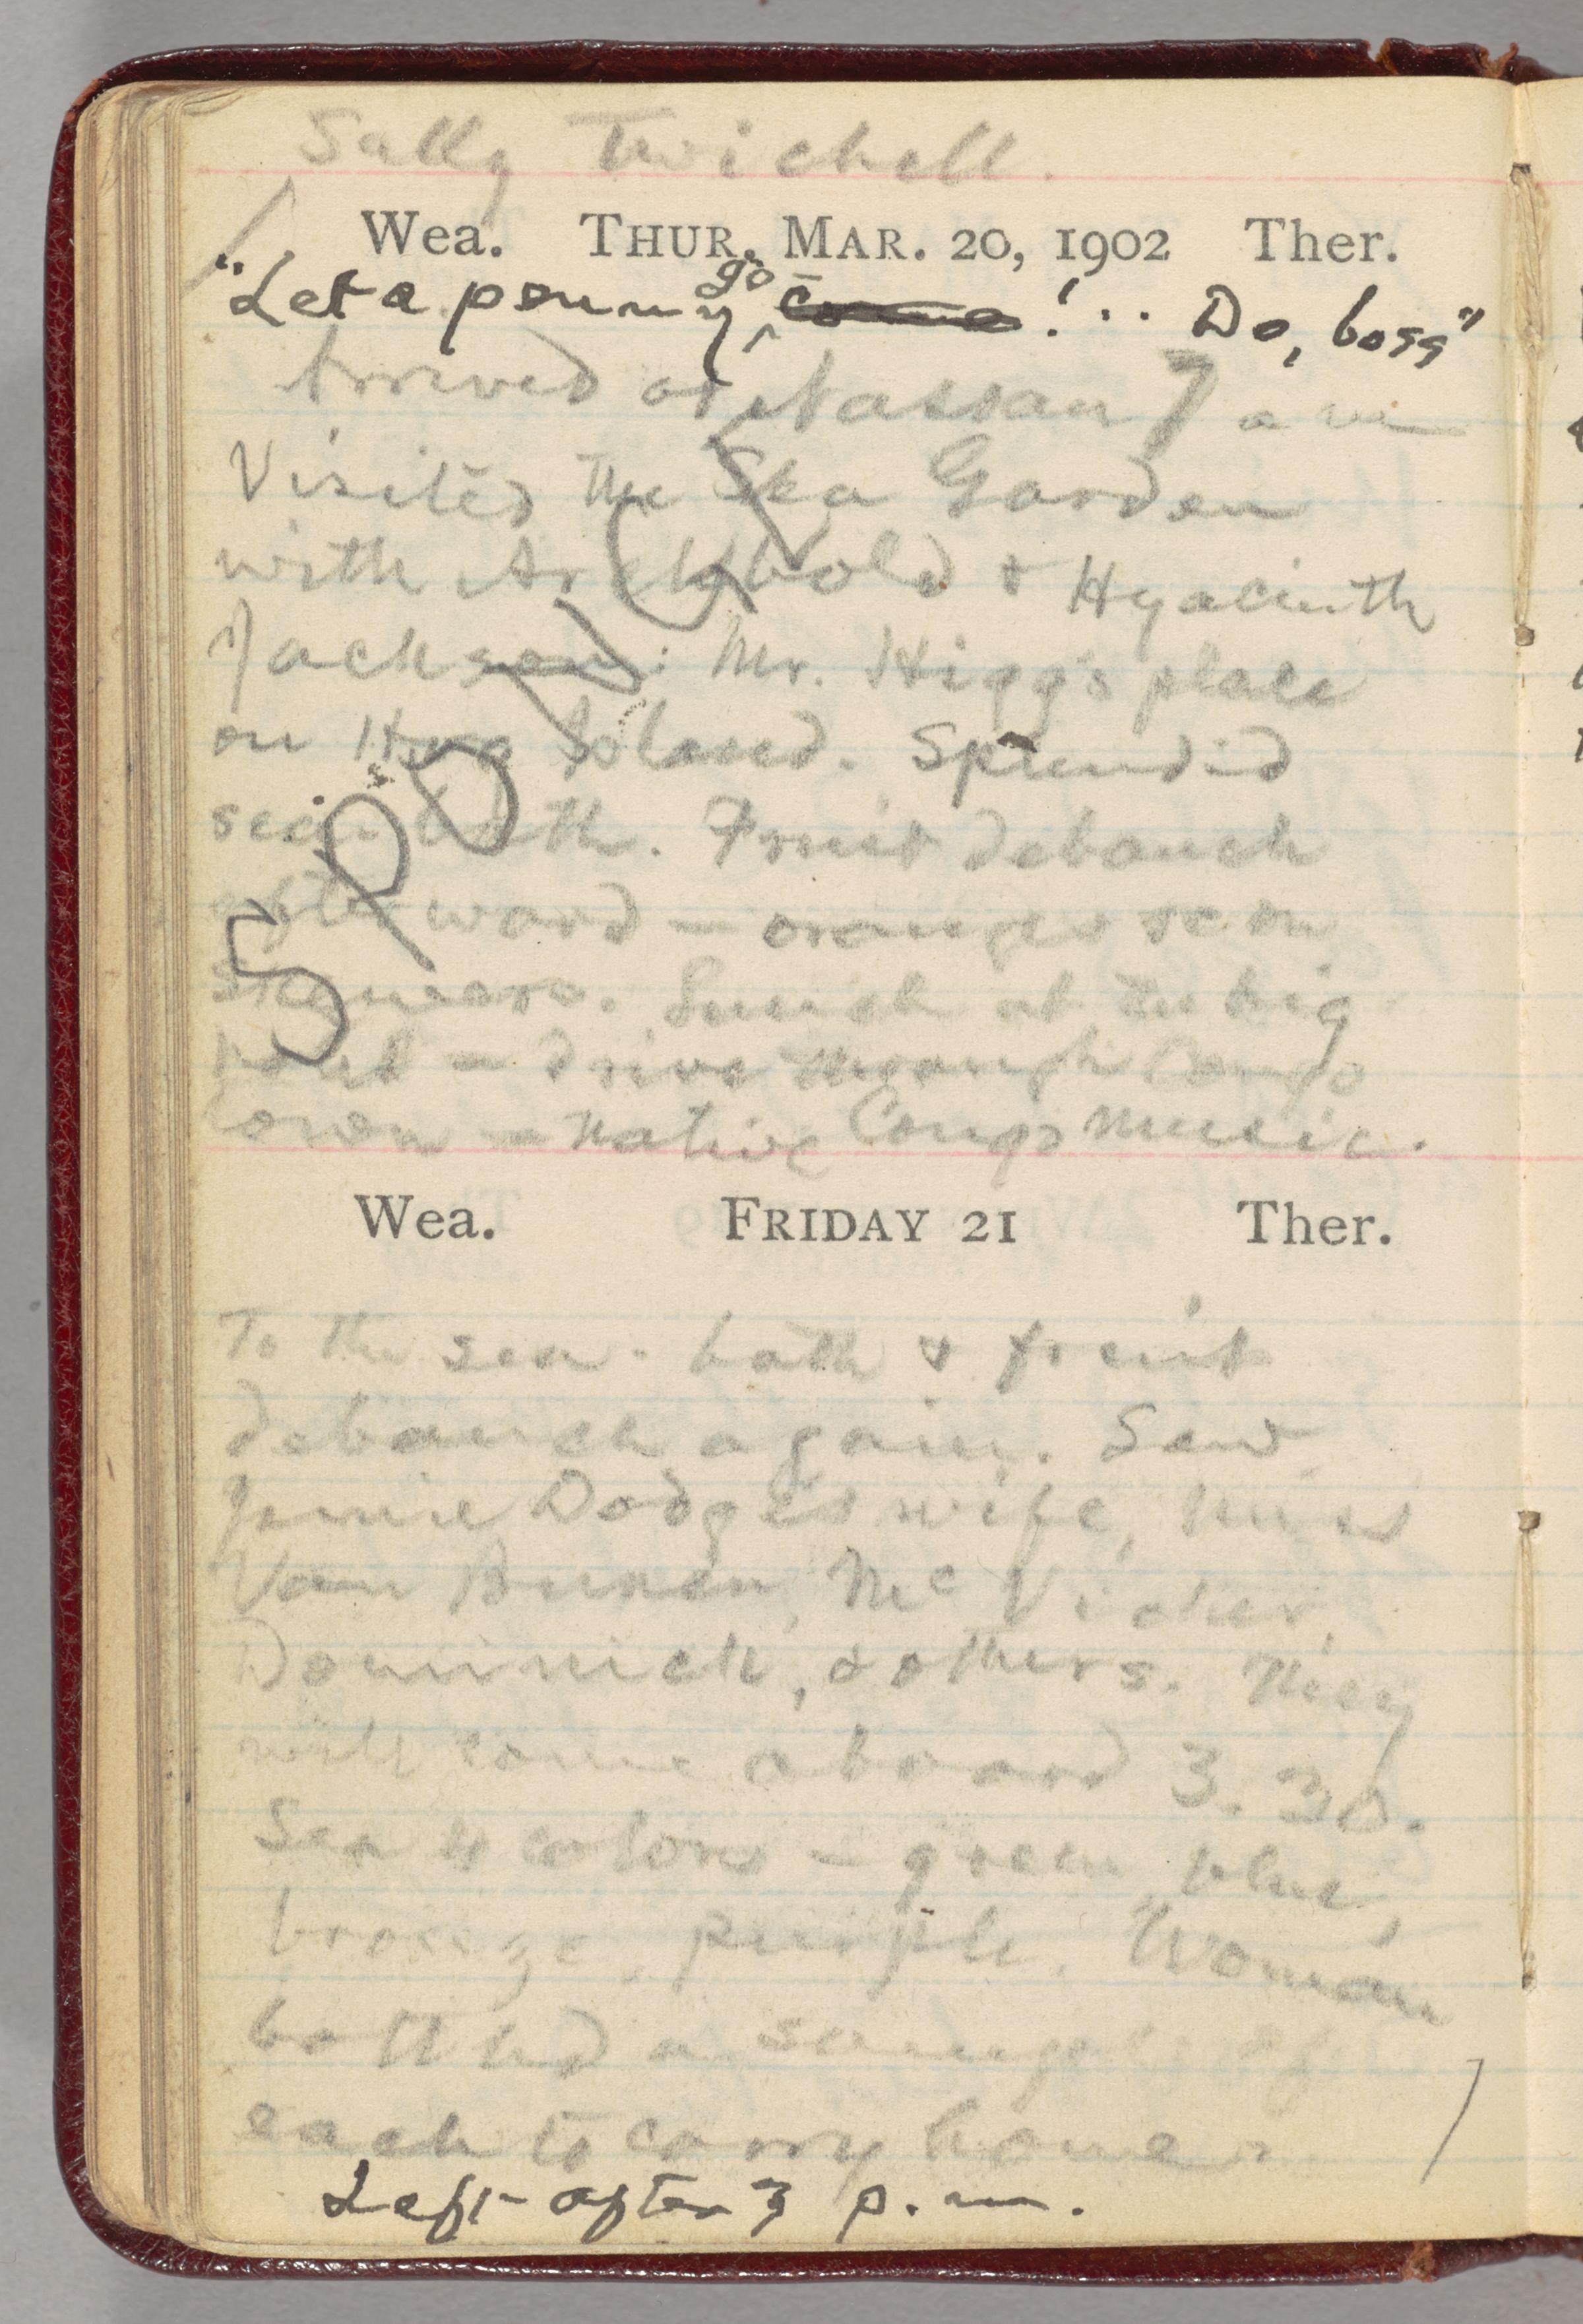 Sally Twichell.
Wea. THUR. MAR. 20, 1902 Ther.
"Let a penny go come!... Do, boss"
Arrived at Nassau 7 am
Visited the Sea Garden
with Archbold & Hyacinth
Jackson: Mr. Higg's place
on Hog Island. Splendid
sea-bath. Fruit debauch
afterward — oranges
Lunch at the big
hotel — drive through Congo
town — native Congo music.
Wea. FRIDAY 21 Ther.
To the sea-bath & fruit
debauch again. Saw
Dodge's wife, Miss
Van Buren, McVicker,
Dominick, & others. They
will come aboard 3.30.
Sea 4 colors — green, blue,
bronze, purple. Woman
bottled a sample of
each to carry home.
Left after 3 p.m.